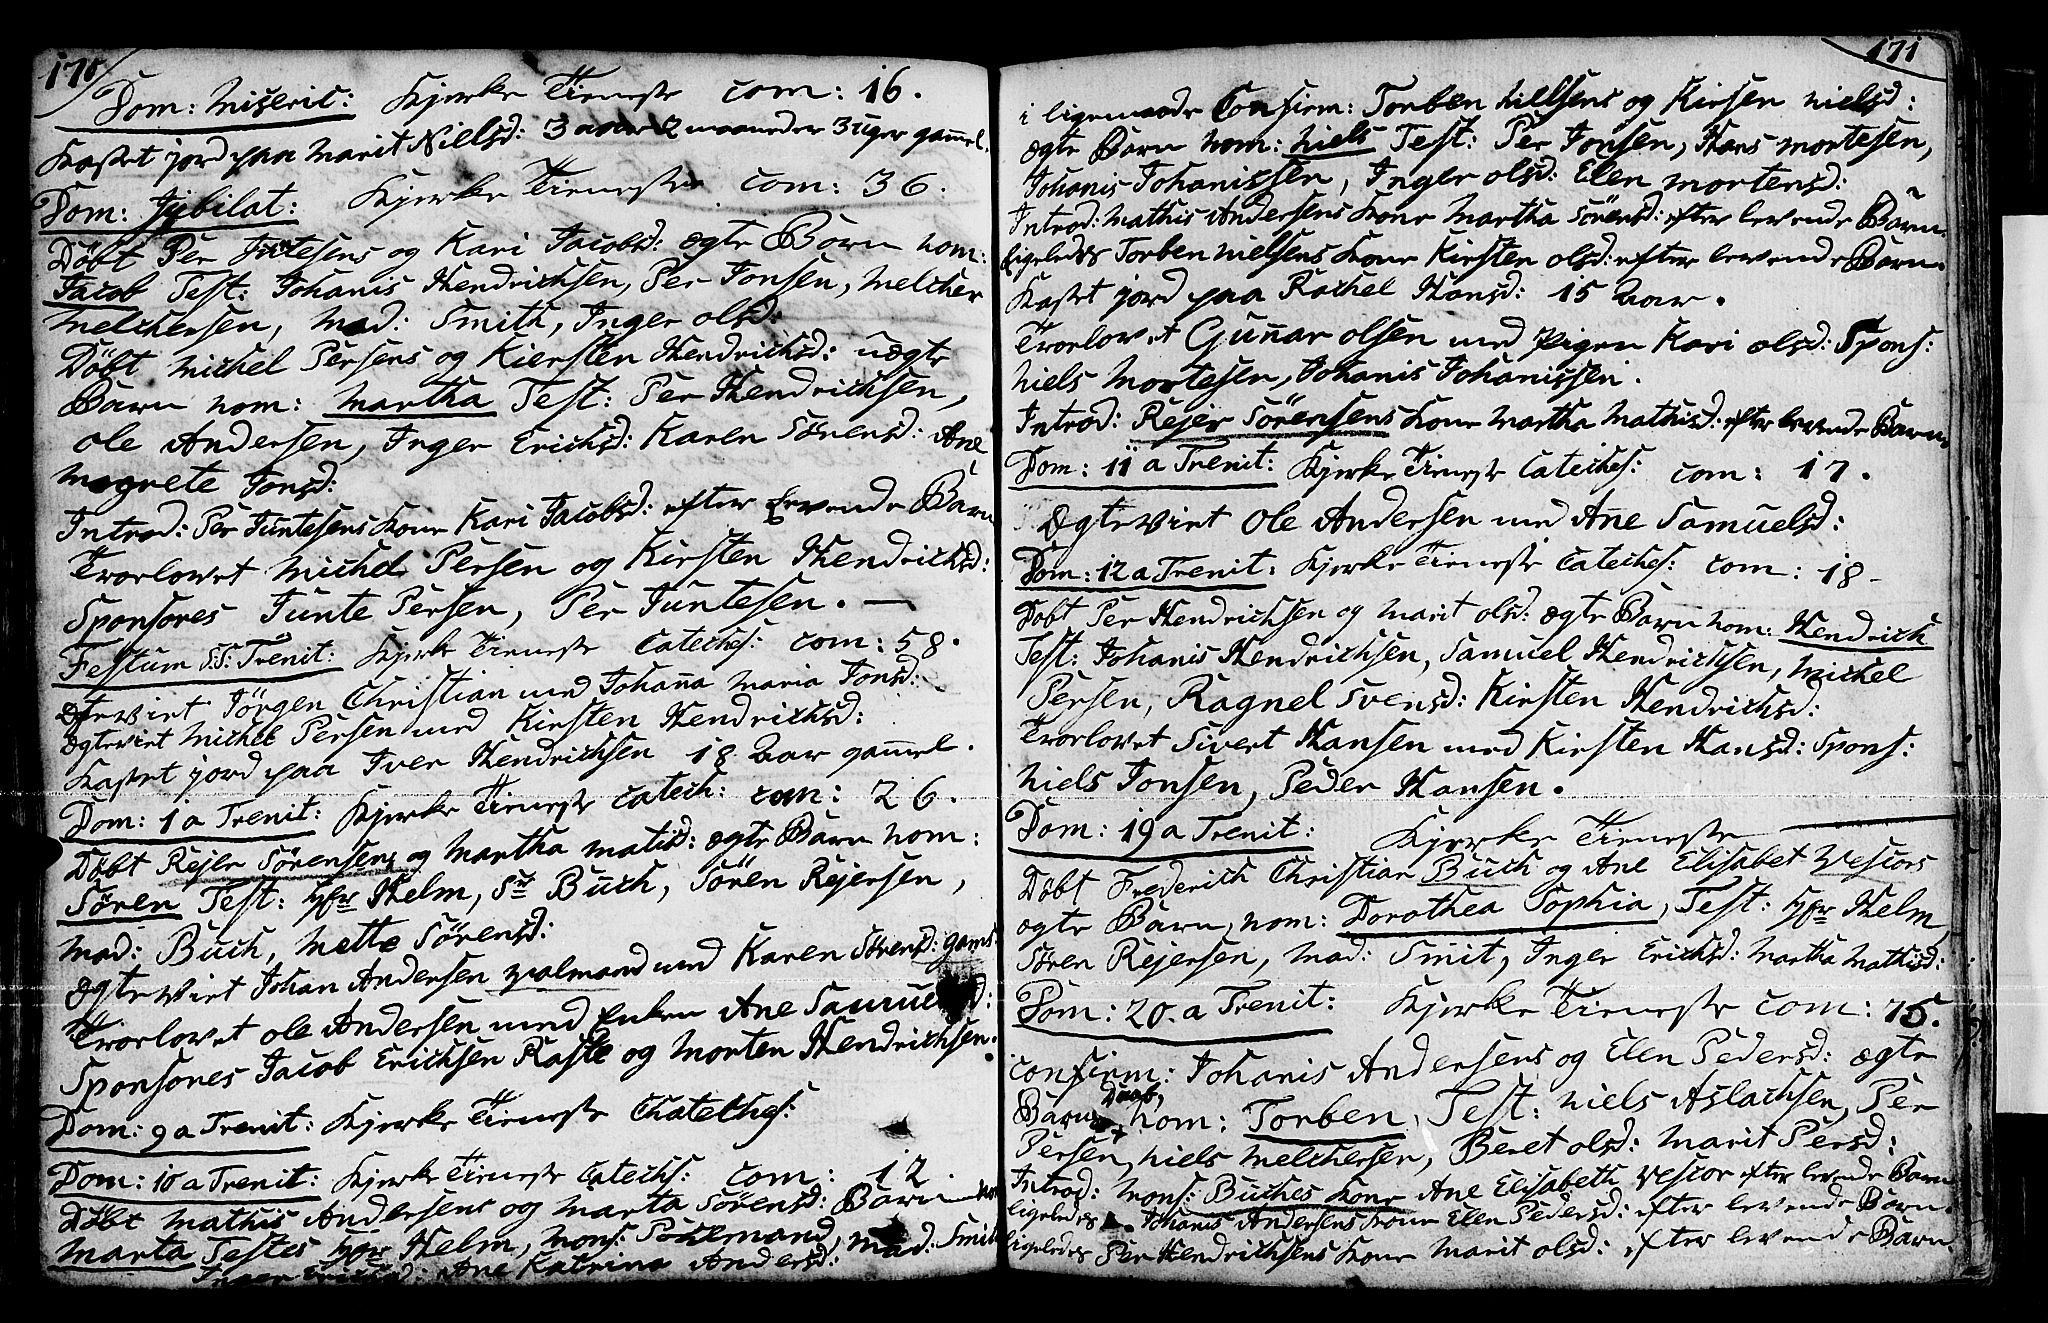 170
Dom: Miseric: Kjerke Tieneste com: 16.
Kastet jord paa Marit Nielsd: 3 aar 2 maaneder 3 uger gammel.
Dom: Jubilat: Kjerke Tieneste com: 36.
Döbt Per Juntesens og Kari Jacobsd: ægte Barn nom:
Jacob Test: Johanis Hendrichsen, Per Jonsen, Melcher
Melchersen, Mad: Smith, Inger olsd:
Döbt Michel Persens og Kiersten Hendrichsd: uægte
Barn nom: Martha Test: Per Hendrichsen,
Ole Andersen, Inger Erichsd: Karen Sörensd: Ane
Magrete Jonsd:
Introd: Per Juntesens Kone Kari Jacobsd: efter levende Barn
Trorlovet Michel Persen og Kirsten Hendrichsd:
Sponsores Junte Persen, Per Juntesen. —
Festum S:S: Trenit: Kjerke Tieneste Cateches: com: 58.
Ægteviet Jörgen Christian med Johanna Maria Jonsd:
Ægteviet Michel Persen med Kirsten Hendrichsd:
Kastet jord paa Iver Hendrichsen 18 Aar gammel.
Dom: 1 a Trenit: Kjerke Tieneste Catech: com: 26.
Döbt Rejer Sörensens og Martha Matisd: ægte Barn nom:
Sören Test: Hr Helm, Sr Buch, Sören Rejersen,
Mad: Buch, Mette Sörensd:
Ægteviet Johan Andersen qvalmand med Karen Sörensd: gams:
Trorlovet Ole Andersen med Enken Ane Samuelsd:
Sponsores Jacob Erichsen Raste og Morten Hendrichsen.
Dom: 9 a Trenit: Kjerke Tieneste Chateches:
Dom: 10 a Trenit: Kjerke Tieneste Catechs: com: 12.
Döbt Mathis Andersens og Marta Sörensd: Barn nom
Marta Testes Hr Helm, Mons: Pohlmand, Mad: Smith
Inger Erichsd: Ane Katrina Andersd:
171
i ligemaade Confirm: Torben Nielsens og Kirsen Nielsd:
ægte Barn nom: Niels Test: Per Jonsen, Hans Mortesen,
Johanis Johanissen, Inger olsd: Elen Mortensd:
Introd: Mathis Andersens Kone Martha Sörensd: efter levende Barn.
ligeledes Torben Nielsens Kone Kirsten olsd: efter levende Barn.
Kastet jord paa Rachel Hansd: 15 Aar.
Trorlovet Gunnar Olsen med Pigen Kari olsd: Spons:
Niels Mortesen, Johanis Johanissen.
Introd: Rejer Sörensens Kone Martha Mathisd: efter levende Barn
Dom: 11 a Trenit: Kjerke Tieneste Cateches: com: 17.
Ægteviet Ole Andersen med Ane Samuelsd:
Dom: 12 a Trenit: Kjerke Tieneste Cateches: com: 18-
Döbt Per Hendrichsen og Marit olsd: ægte Barn nom: Hendrich
Test: Johanis Hendrichsen, Samuel Hendrichsen, Michel
Persen, Ragnel Svensd: Kirsten Hendrichsd:
Trorlovet Sivert Hansen med Kirsten Hansd: Spons:
Niels Jonsen, Peder Hansen.
Dom: 19 a Trenit: Kjerke Tieneste
Döbt Frederich Christian Buch og Ane Elisabet Vescors
ægte Barn, nom: Dorothea Sophia, Test: Hr Helm
Sören Rejersen, Mad: Smit, Inger Erichsd: Martha Mathisd:
Dom: 20. a Trenit: Kjerke Tieneste com: 75.
Confirm: Johanis Andersens og Elen Pedersd: ægte
Barns Daab, nom: Torben, Test: Niels Aslachsen, Per
Persen, Niels Melchersen, Beret olsd: Marit Persd:
Introd: Mons: Buches Kone Ane Elisabeth Vescor efter levende Barn
ligeledes Johanis Andersens Kone Elen Pedersd: efter levende Barn.
ligeledes Per Hendrichsens Kone Marit olsd: efter levende Barn.